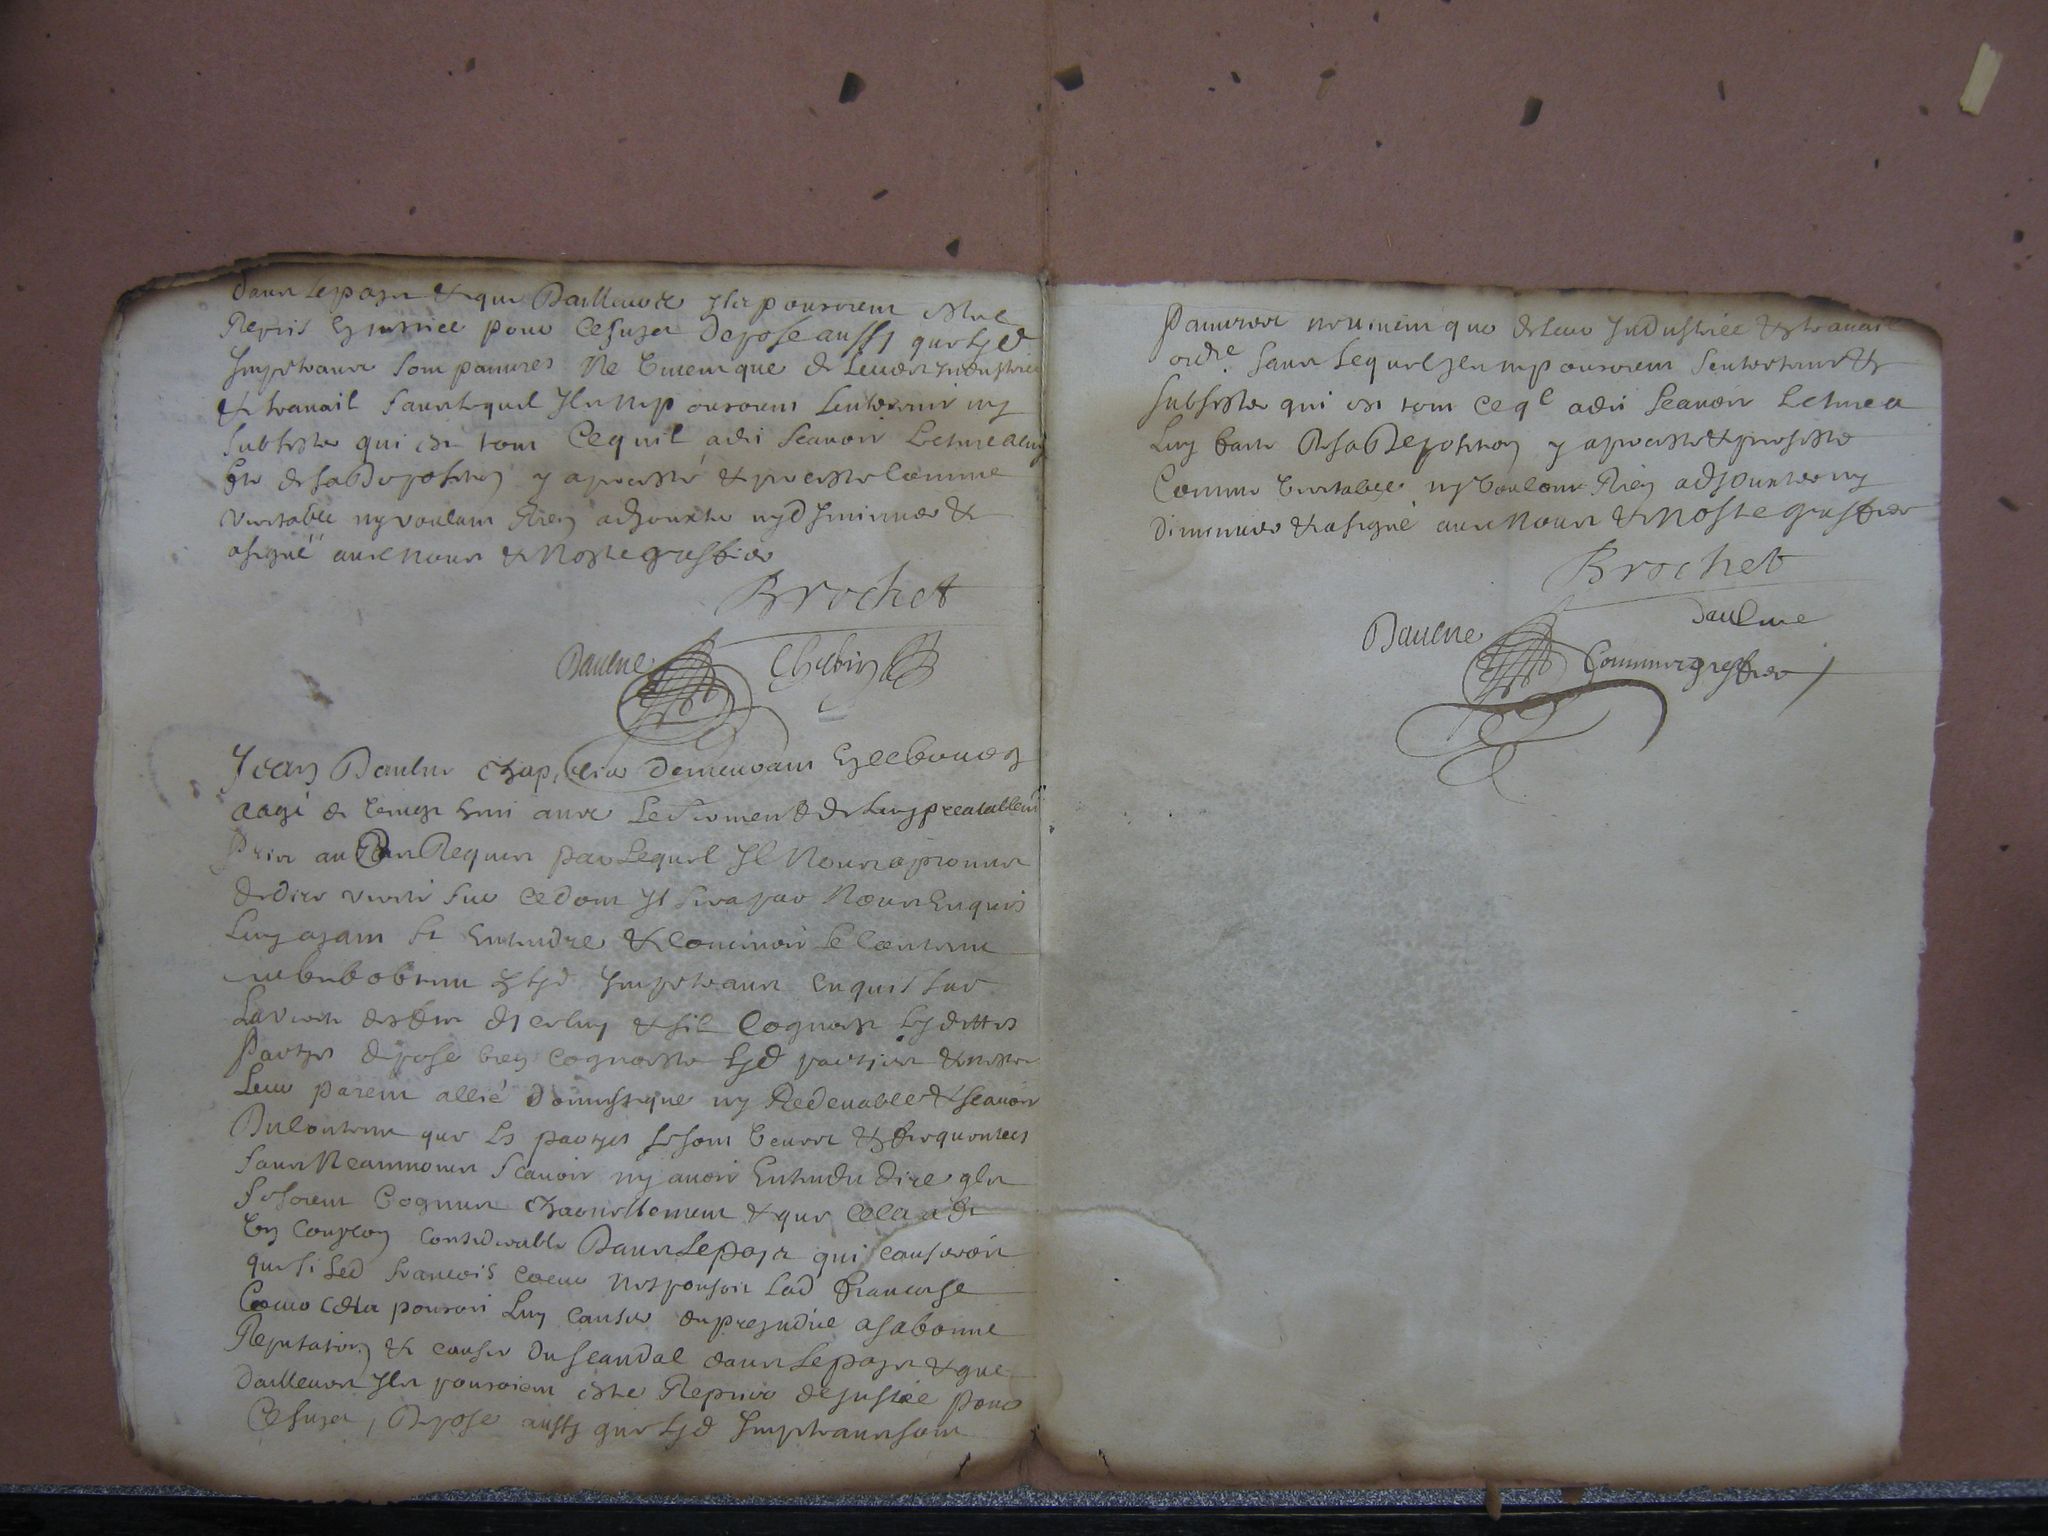 dans le pays et que Dailleurs Ils pouroient estre
Repris En justice pour Ce sujet Depose aussy que lesd
Impetrans sont pauvres Ne Vivent que de Leurs Industrie
et travail sans lequel Ils ne pouroient sentretenir ny
subsister qui est tout Ce quil a dit scavoir Lecture a luy
fte de sa Deposition y a perciste et perciste Comme
veritable ny voulant Rien adjouxter ny diminuer et
a signé avec nous et Nostre greffier
Brochet
Daulne Chebin
Jean Daulne Chapelier demeurant En ce bourg
aagé de vingt huit ans Le serment de Luy prealablemt
Pris au Cas Requis par Lequel Il Nous a promis
de dire verité sur Ce dont Il sera par Nous Enquis
Luy ayant ft Entendre et Concevoir Le Contenu
au bref obtenu lesd Impetrans Enquis sur
La verité diceluy et sil Cognoist lesdittes
Partyes depose bien Cognoistre lesd partyes et nestre
Leur parent allié domestique ny Redevable et scavoir
Du Contenu que les partyes se sont veues et frequentees
sans Neanmoins scavoir ny avoir Entendu dire qls
se soient Cognus Charnellement et que Cela a
un soupcon Considerable Dans Le pays qui causeroit
que si Led francois Coeur Nespousoit Lad francoise
Coeur Cela pouroit Luy Causer du prejudice a sa bonne
Reputation et causer du scandal dans Le pays et que
Dailleurs Ils pouroient estre Repris de justice pour
Ce sujet, Depose aussy que lesd Impetrans sont
Pauvres ne vivent que de leur Industrie et travail
ordre sans Lequel Ils ne pouroient sentretenir et
subsister qui est tout Ce ql a dit scavoir Lecture a
Luy faite de sa Deposition y a perciste et perciste
Comme veritable ny voulant Rien adjouxter ny
diminuer et a signé avec Nous et Nostre greffier
Brochet
Daulne Daulne
Commis greffier